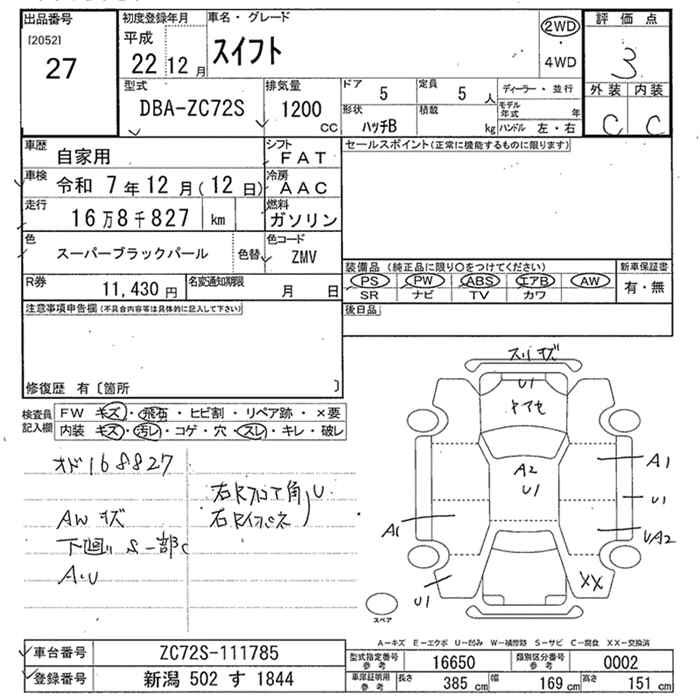 出品番号 初度登録年月 車名・グレード 評価点
[2052] 平成 スイフト 2WD
27 22 12月 ・ 3
4WD
型式 排気量 ドア 5 定員 5人 ディーラー・並行 外装 内装
DBA-ZC72S 1200cc 形状 ハッチB 積載 kg モデル年式 年 C C
ハンドル 左・右
車歴 自家用 シフト FAT セールスポイント(正常に機能するものに限ります)
車検 令和 7年12月(12日) 冷房 AAC
走行 16万8千827 km 燃料 ガソリン
色 スーパーブラックパール 色替 色コード ZMV
装備品(純正品に限り○をつけてください) 新車保証書
R券 11,430円 名変通知期限 月 日 PS PW ABS エアB AW 有・無
SR ナビ TV カワ
注意事項申告欄(不具合内容等は具体的に記入して下さい) 後日品
修復歴 有〔箇所 〕
検査員記入欄 FW キズ・飛石・ヒビ割・リペア跡・×要
内装 キズ・汚レ・コゲ・穴・スレ・キレ・破レ
オド168827
AW キズ
下廻り S一部C
A.U
スリキズ
U1
A2
U1
A1
U1
UA2
A1
U1
XX
スペア
A−キズ E−エクボ U−凹み W−補修跡 S−サビ C−腐食 XX−交換済
車台番号 ZC72S-111785 型式指定番号 参考 16650 類別区分番号 参考 0002
登録番号 新潟 502 す 1844 車庫証明用 参考 長さ 385cm 幅 169cm 高さ 151cm